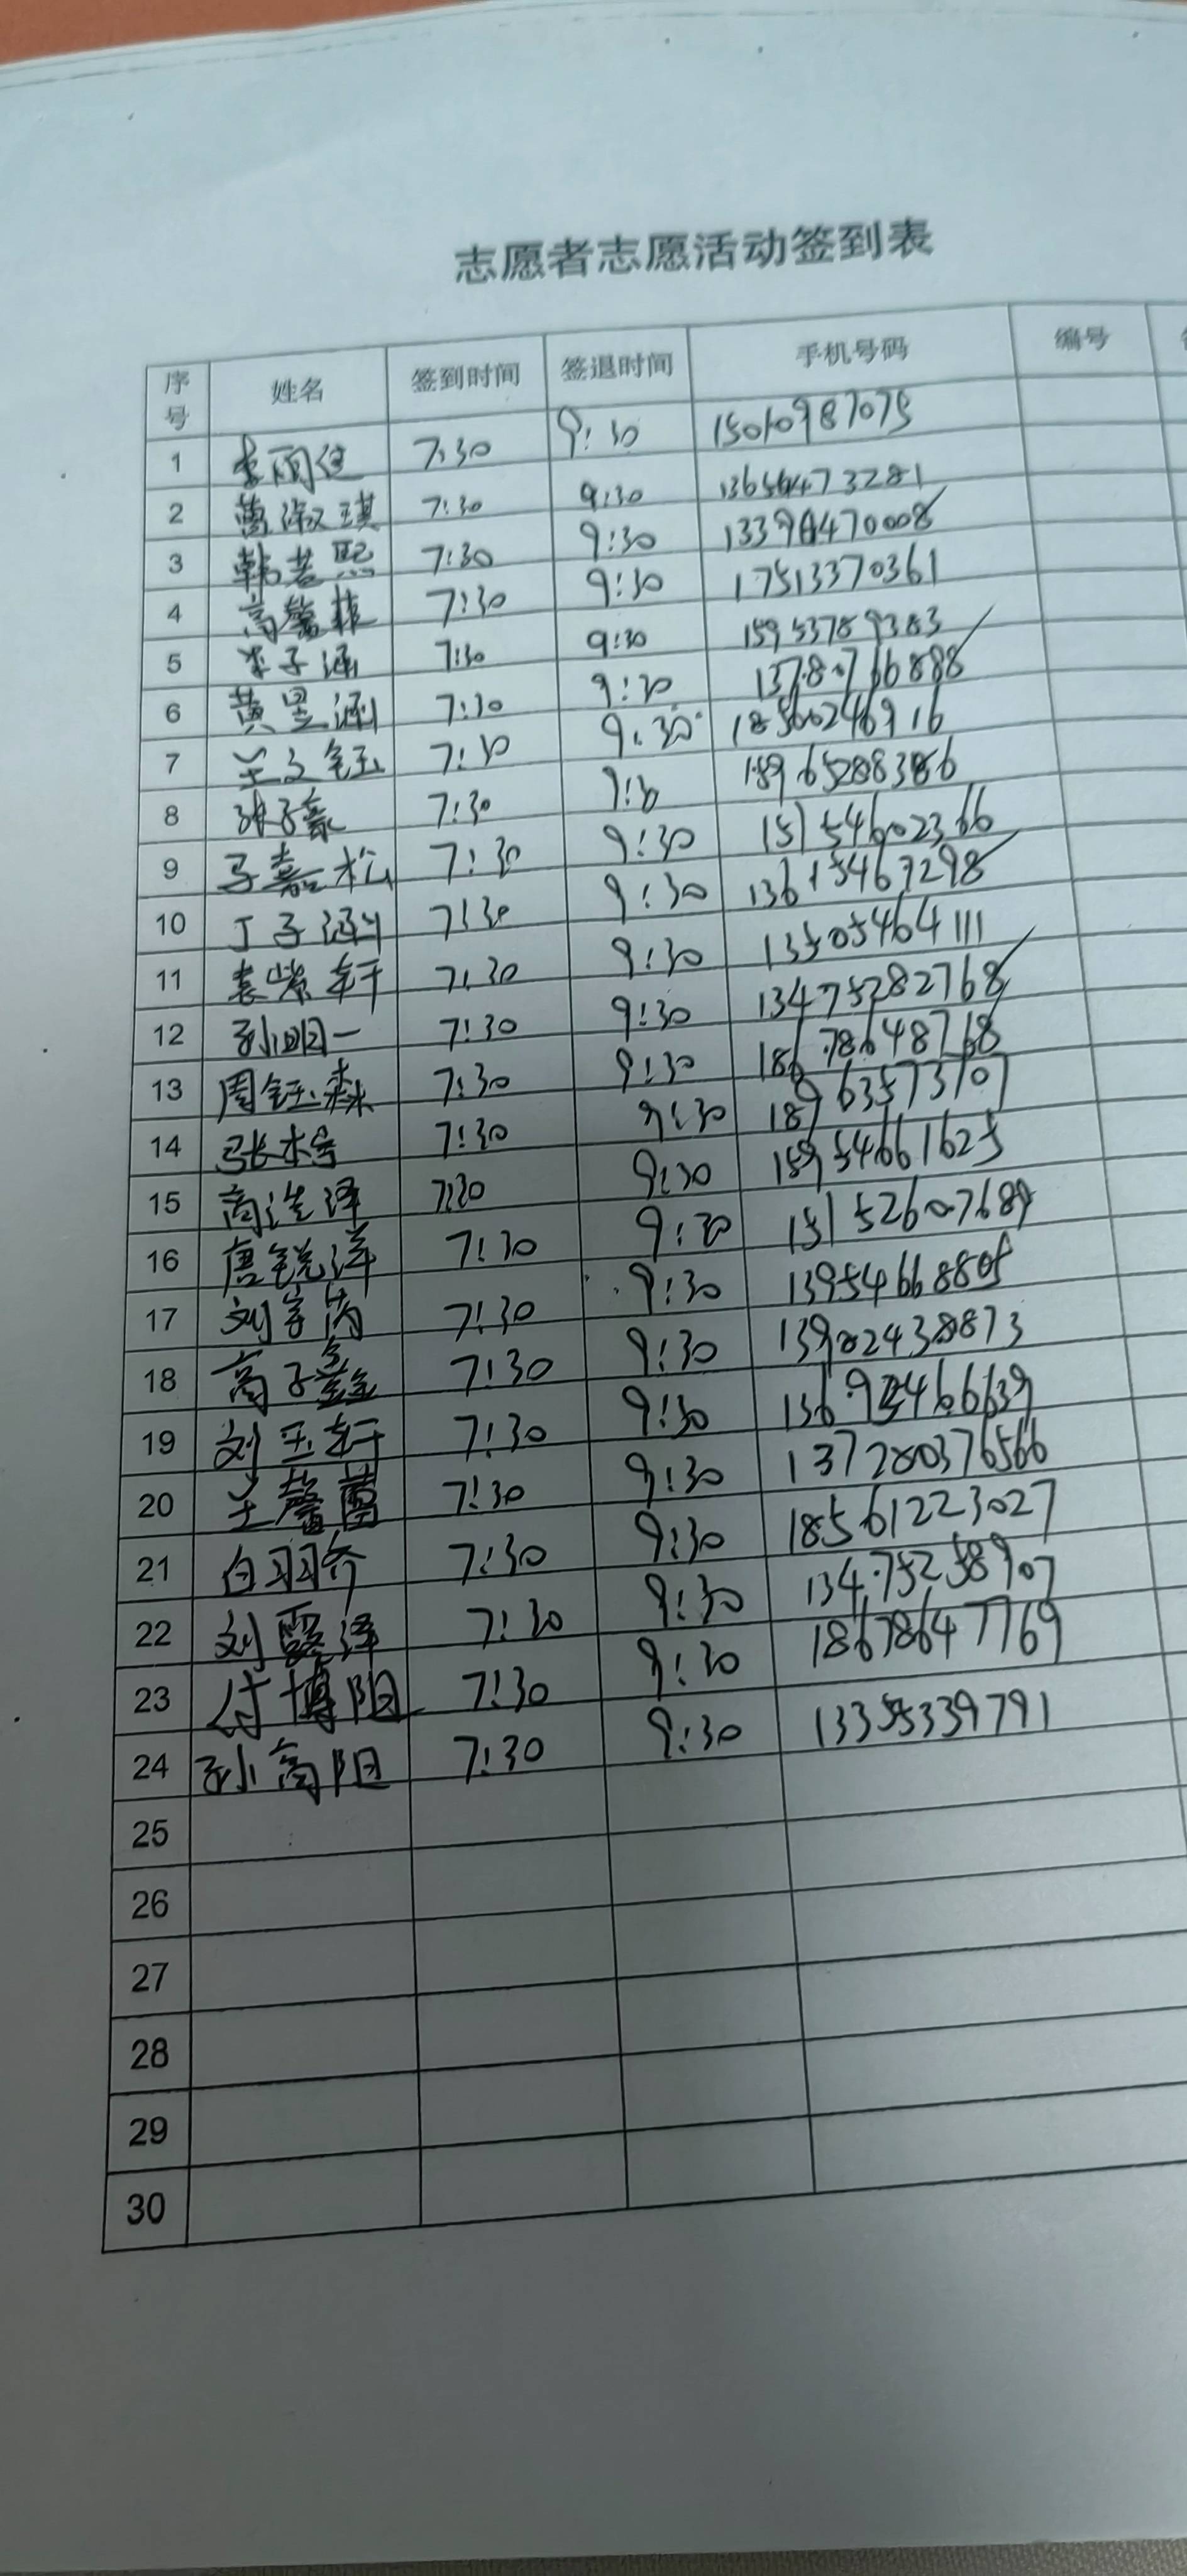 志愿者志愿活动签到表
序号 姓名 签到时间 签退时间 手机号码 编号
1 李雨佳 7:30 9:30 15010987075
2 淑琪 7:30 9:30
3 韩若熙 7:30 9:30
4 高馨菲 7:30 9:30 17513370361
5 李子涵 7:30 9:30 15953789383
6 黄昱涵 7:30 9:30 13780766888
7 王文钰 7:30 9:30 18560246916
8 张子豪 7:30
9 马嘉松 7:30 9:30 15154602366
10 丁子涵 7:30 9:30 13615467298
11 袁紫轩 7:30 9:30 13505464111
12 孙明一 7:30 9:30 13475282768
13 周钰森 7:30 9:30 18678648768
14 7:30 9:30 18963573707
15 高浩泽 7:30 9:30 15954661625
16 唐锐泽 7:30 9:30 15152607689
17 刘 7:30 9:30 13954668805
18 高子鑫 7:30 9:30
19 刘玉轩 7:30 9:30
20 王馨 7:30 9:30
21 白羽乔 7:30 9:30 18561223027
22 刘 泽 7:30 9:30 13475258907
23 付博阳 7:30 9:30 18678647769
24 孙高阳 7:30 9:30 13355339791
25
26
27
28
29
30